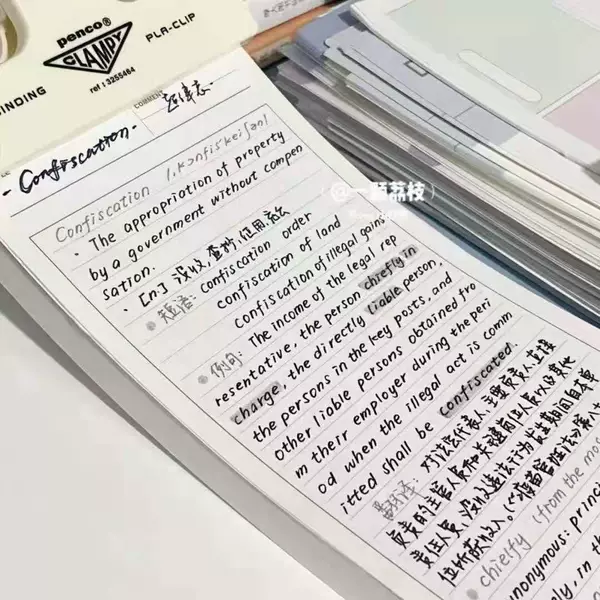 penco®
CLAMPY
PLA-CLIP
ref: 3255464
INDING
COMMENT
·Confiscation·
Confiscation [ˌkɒnfɪskeiʃən]
· The appropriation of property
by a government without compen
sation.
· [n.] 没收,查抄,征用,充公
短语: confiscation order
confiscation of land
confiscation of illegal gains
例句: The income of the legal rep
resentative, the person chiefly in
charge, the directly liable person,
the persons in the key posts, and
other liable persons obtained fro
m their employer during the peri
od when the illegal act is comm
itted shall be confiscated.
翻译: 对法定代表人、主要负责人、直接
负责的主管人员和关键岗位人员以及其他
责任人员,没收违法行为发生期间自本单
位所获收入。
chiefly (from the mos
nonymous: princi
ly, in th
@一颗荔枝